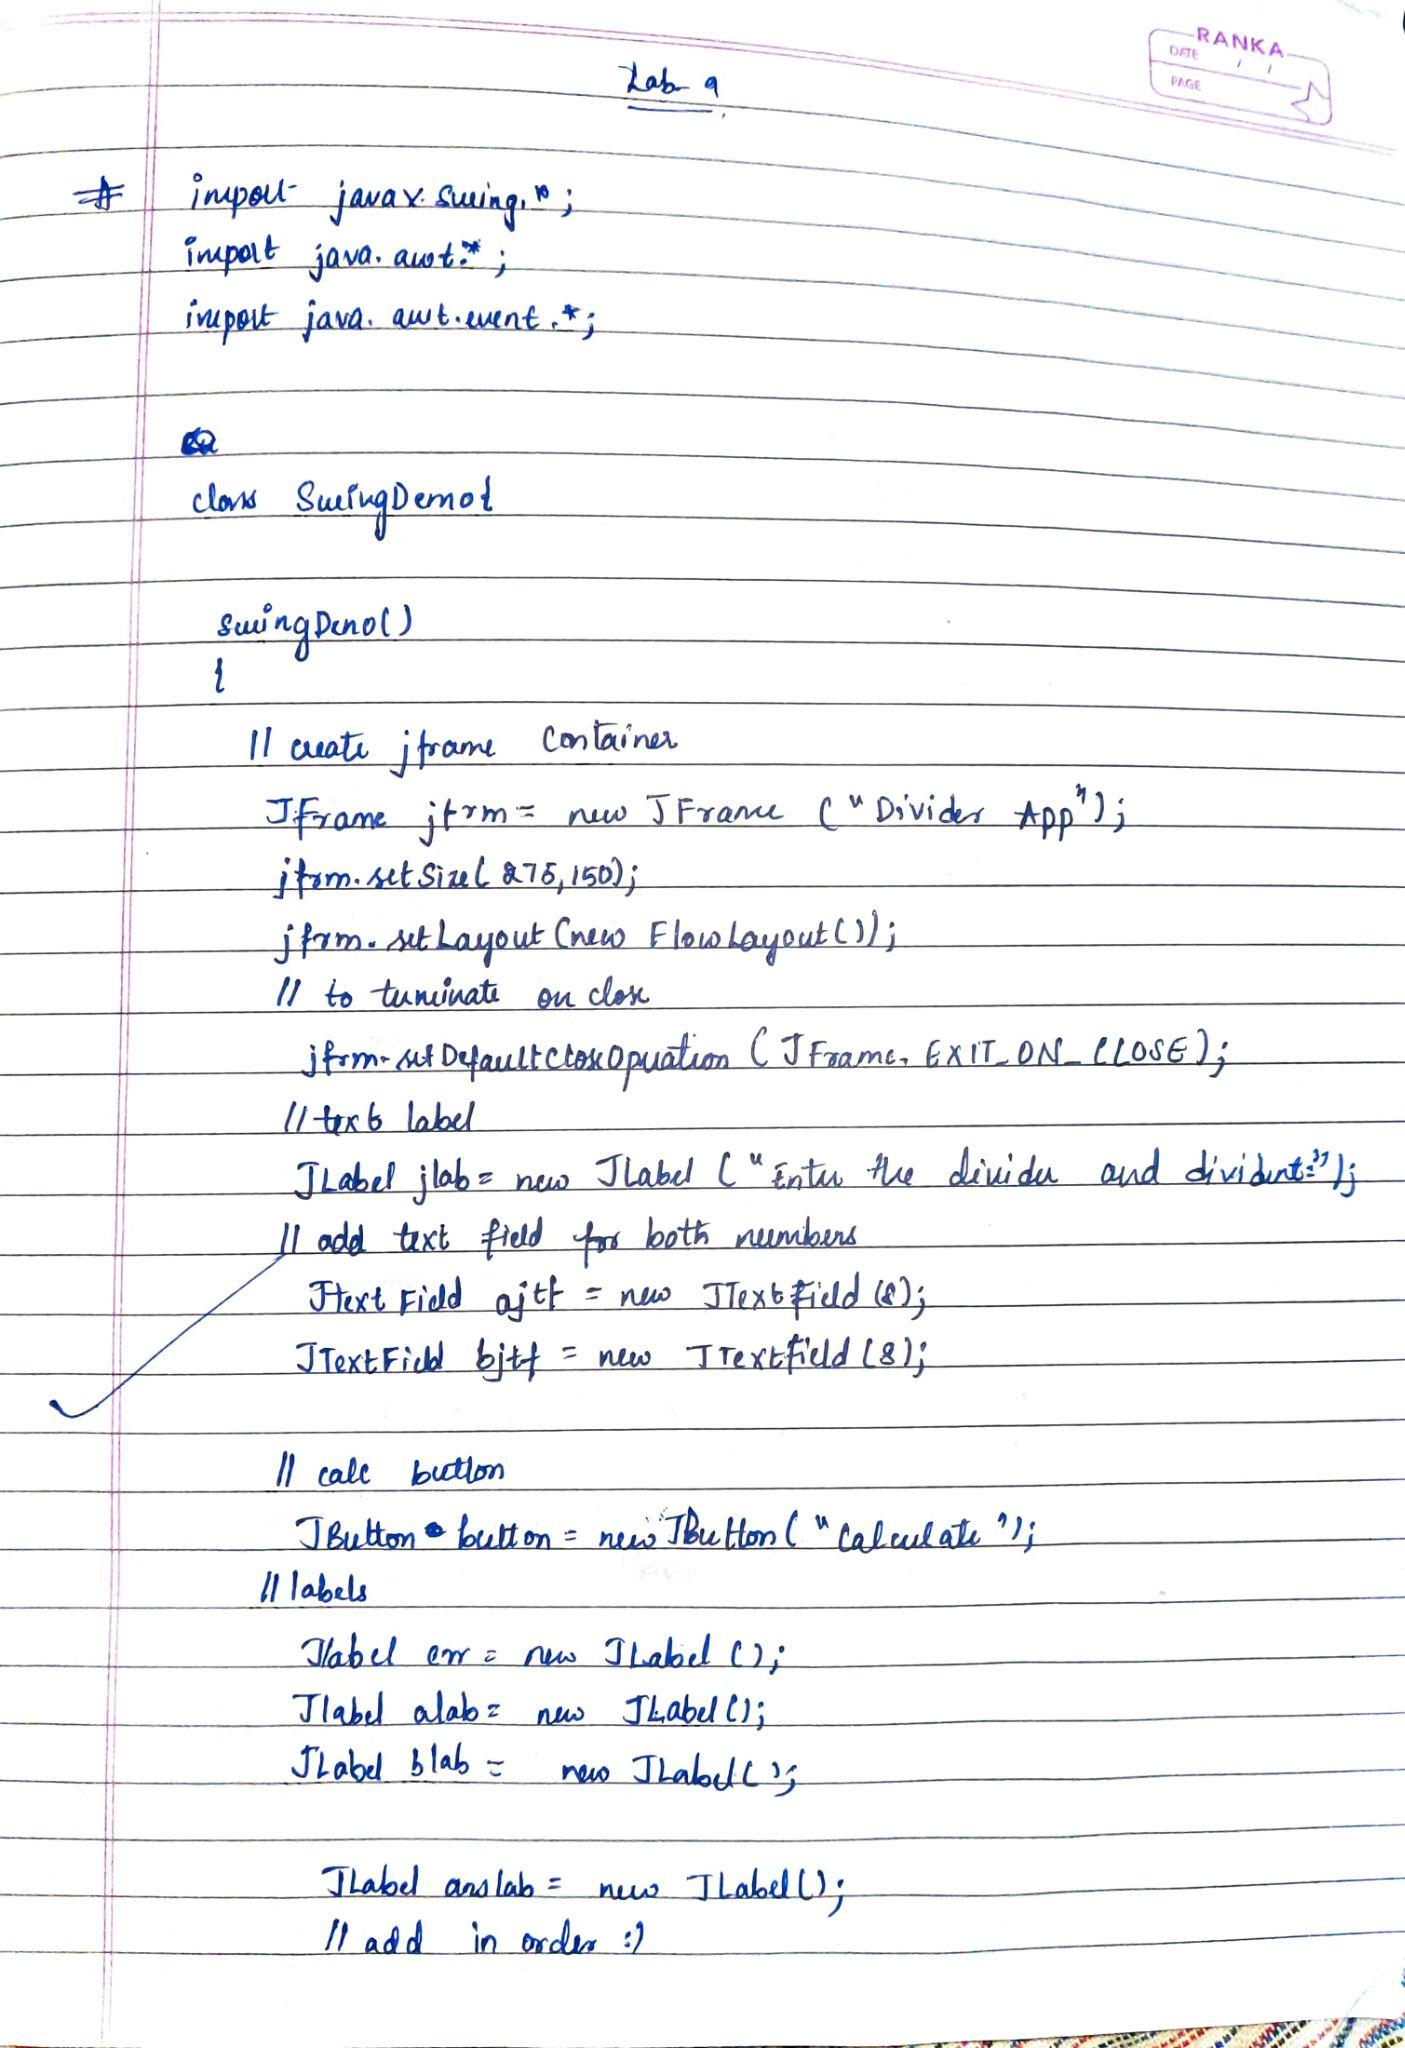 RANKA
DATE / /
PAGE
Lab 9
# import javax.swing.*;
import java.awt.*;
import java.awt.event.*;
class SwingDemo{
SwingDemo()
{
// create jframe container
JFrame jfrm = new JFrame ("Divider App");
jfrm.setSize(275,150);
jfrm.setLayout(new FlowLayout());
// to terminate on close
jfrm.setDefaultCloseOperation (JFrame.EXIT_ON_CLOSE);
// text label
JLabel jlab = new JLabel ("Enter the divider and divident:");
// add text field for both numbers
JtextField ajtf = new JTextField(8);
JTextField bjtf = new JTextfield(8);
// calc button
JButton button = new JButton("Calculate");
// labels
Jlabel err = new JLabel ();
Jlabel alab = new JLabel();
JLabel blab = new JLabel();
JLabel anslab = new JLabel();
// add in order :)